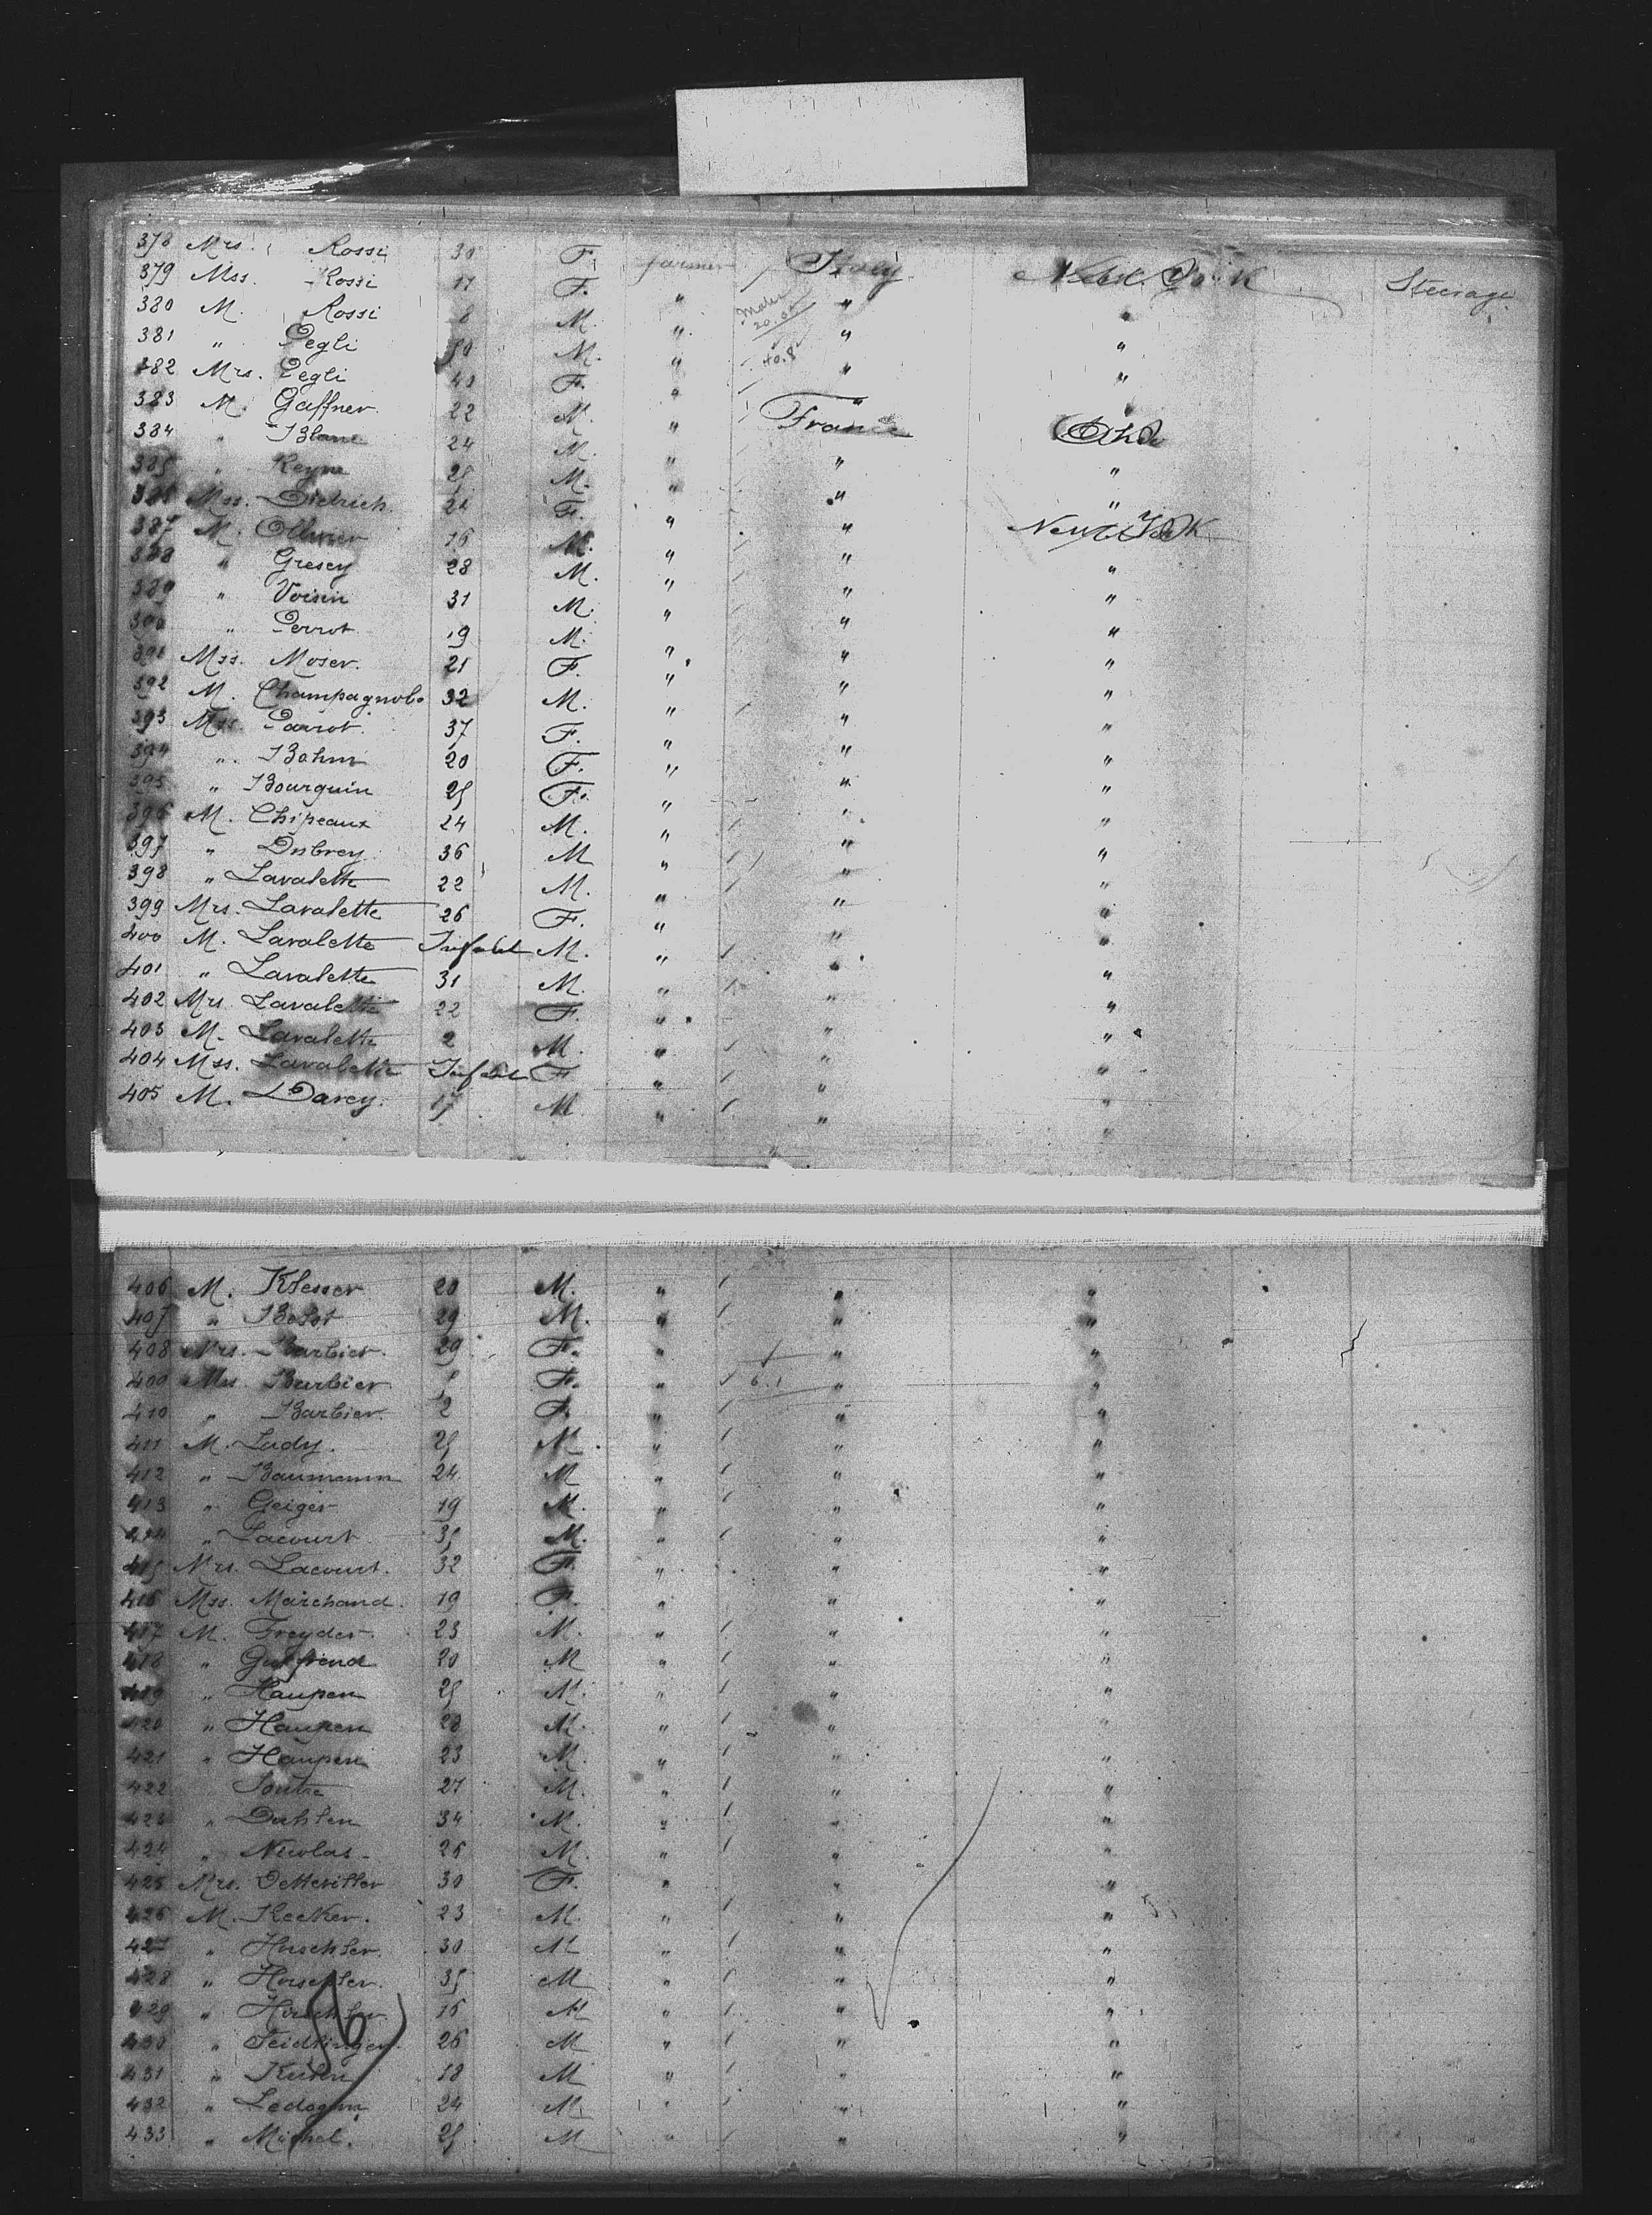 378 Mrs. Rossi 30 F. farmer Italy New York Steerage
379 Mss. Rossi 17 F. " " "
380 M. Rossi 8 M. " " "
381 " Pegli 50 M. " " "
382 Mrs. Pegli 40 F. " " "
383 M. Gaffner. 22 M. " France Ohio
384 " Blanc 24 M. " " "
385 " Reyne 25 M. " " "
386 Mss. Dietrich. 21 F. " " New York
387 M. Ollivier 16 M. " " "
388 " Gresey 28 M. " " "
389 " Voisin 31 M. " " "
390 " Perrot 19 M. " " "
391 Mss. Moser. 21 F. " " "
392 M. Champagnole 32 M. " " "
393 Mss. Parrot. 37 F. " " "
394 " Bohm 20 F. " " "
395 " Bourguin 25 F. " " "
396 M. Chipeaux 24 M. " " "
397 " Dubrey 36 M " " "
398 " Lavalette 22 M. " " "
399 Mrs. Lavalette 26 F. " " "
400 M. Lavalette Infant M. " " "
401 " Lavalette 31 M. " " "
402 Mrs. Lavalette 22 F. " " "
403 M. Lavalette 2 M. " " "
404 Mss. Lavalette Infant F " " "
405 M. Darcy. 17 M. " " "
406 M. Klesser 20 M. " " "
407 " Bobst 29 M. " " "
408 Mrs. Barbier. 29 F. " " "
400 Mss. Barbier F. " 6.1 " "
410 " Barbier. 2 F. " " "
411 M. Ludy. 25 M. " " "
412 " Baumann 24 M " " "
413 " Geiger 19 M. " " "
414 " Lacourt 35 M. " " "
415 Mrs. Lacourt. 32 F. " " "
416 Mss. Marchand. 19 F. " " "
417 M. Freyder. 23 M. " " "
418 " Gutfreund 20 M " " "
419 " Haupen 25 M. " " "
420 " Haupen 28 M. " " "
421 " Haupen 23 M. " " "
422 27 M. " " "
423 " Dahlen 34 M. " " "
424 " Nicolas 26 M. " " "
425 Mrs. Dettwiller 30 F. " " "
426 M. Kecker. 23 M. " " "
427 " Hirschler. 30 M " " "
428 " Hirschler. 35 M " " "
429 " Hirschler 16 M " " "
430 " Feidlinger. 26 M " " "
431 " Kuhn 18 M " " "
432 " 24 M " " "
433 " Michel. 25 M " " "